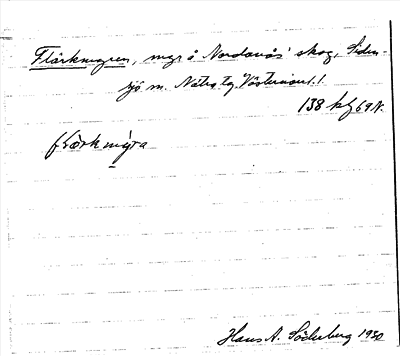 Flärkmyren, myr å Nordanås' skog, Siden-
sjö sn. Nätra tg. Västernorrl.
138 kf 69 N.
flärkmýra
Hans A. Söderberg 1930